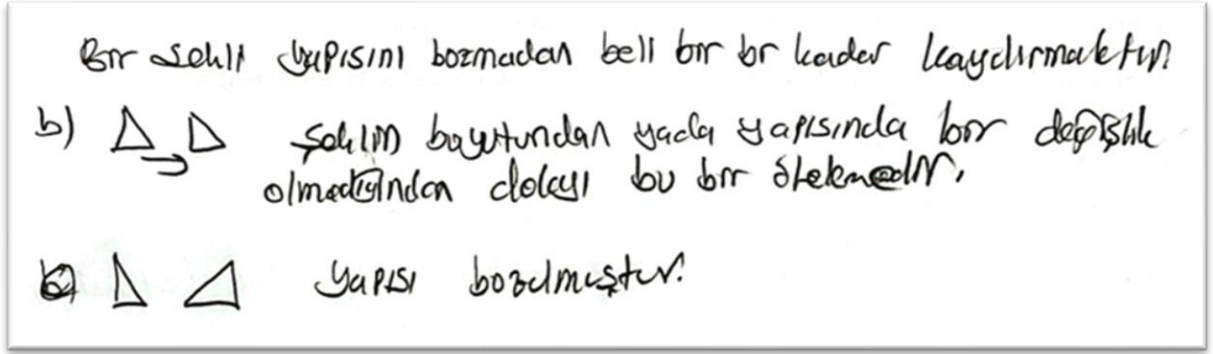 Bir şekli yapısını bozmadan belli bir br kadar kaydırmaktır.
b) Şeklin boyutundan yada yapısında bir değişiklik
olmadığından dolayı bu bir ötelemedir.
c) Yapısı bozulmuştur.